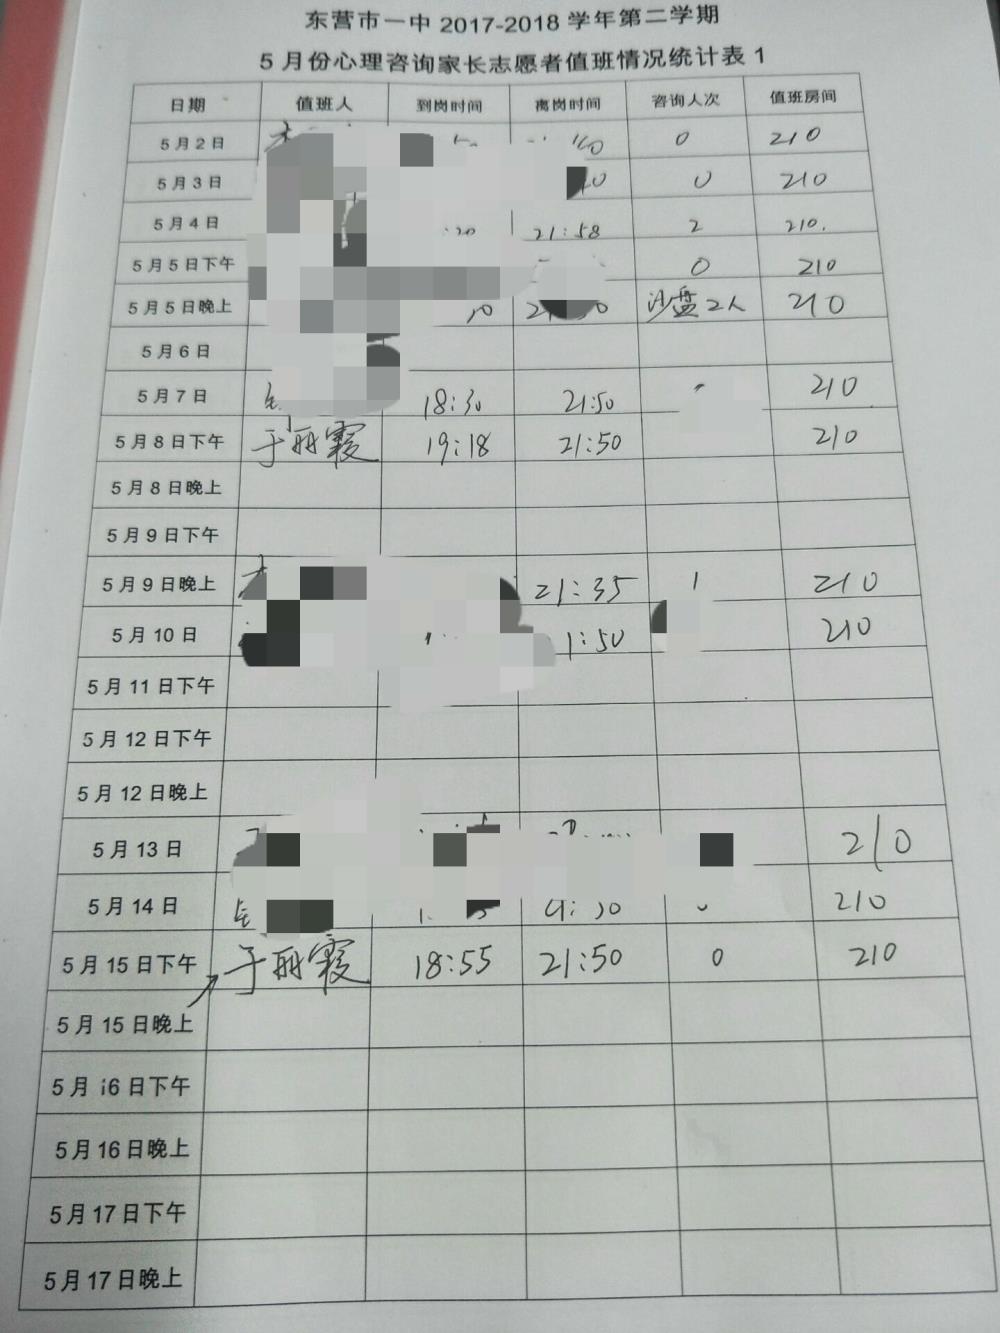 东营市一中 2017-2018 学年第二学期
5 月份心理咨询家长志愿者值班情况统计表 1
日期 值班人 到岗时间 离岗时间 咨询人次 值班房间
5 月 2 日 0 210
5 月 3 日 0 210
5 月 4 日 :20 21:58 2 210.
5 月 5 日下午 0 210
5 月 5 日晚上 沙盘2人 210
5 月 6 日
5 月 7 日 18:30 21:50 210
5 月 8 日下午 于丽霞 19:18 21:50 210
5 月 8 日晚上
5 月 9 日下午
5 月 9 日晚上 21:35 1 210
5 月 10 日 1:50 210
5 月 11 日下午
5 月 12 日下午
5 月 12 日晚上
5 月 13 日 210
5 月 14 日 210
5 月 15 日下午 于丽霞 18:55 21:50 0 210
5 月 15 日晚上
5 月 16 日下午
5 月 16 日晚上
5 月 17 日下午
5 月 17 日晚上